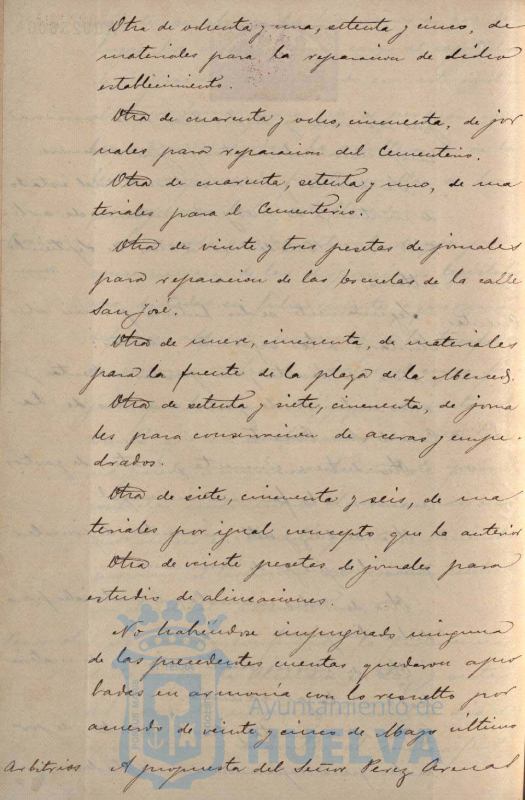 Otra de ochenta y una, setenta y cinco, de
materiales para la reparacion de dicho
establecimiento.
Otra de cuarenta y ocho, cincuenta, de jor
nales para reparacion del Cementerio.
Otra de cuarenta, setenta y uno, de ma
teriales para el Cementerio.
Otra de veinte y tres pesetas de jornales
para reparacion de las Escuelas de la calle
San José.
Otra de nueve, cincuenta, de materiales
para la fuente de la plaza de la Merced.
Otra de setenta y siete, cincuenta, de jorna
les para conservacion de aceras y empe
drados.
Otra de siete, cincuenta y seis, de ma
teriales por igual concepto que la anterior
Otra de veinte pesetas de jornales para
estudio de alineaciones.
No habiéndose impugnado ninguna
de las precedentes cuentas quedaron apro
badas en armonía con lo resuelto por
acuerdo de veinte y cinco de Mayo último
Arbitrios A propuesta del Señor Perez Arenal
Ayuntamiento de
HUELVA